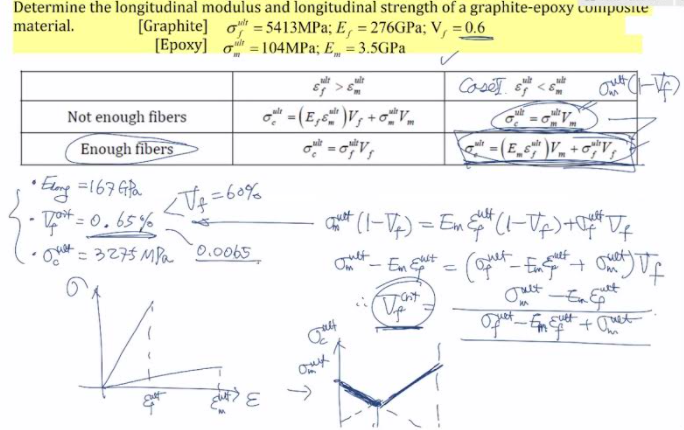 Determine the longitudinal modulus and longitudinal strength of a graphite-epoxy composite
material. [Graphite] σ_f^ult = 5413MPa; E_f = 276GPa; V_f = 0.6
[Epoxy] σ_m^ult = 104MPa; E_m = 3.5GPa
ε_f^ult > ε_m^ult
Case II. ε_f^ult < ε_m^ult
σ_m^ult (1-V_f)
Not enough fibers
σ_c^ult = (E_f ε_m^ult)V_f + σ_m^ult V_m
σ_c^ult = σ_m^ult V_m
Enough fibers
σ_c^ult = σ_f^ult V_f
σ_c^ult = (E_m ε_f^ult)V_m + σ_f^ult V_f
• E_long = 167 GPa
V_f = 60%
• V_f^crit = 0.65% <
• σ_c^ult = 3275 MPa
0.0065
σ_m^ult (1-V_f) = E_m ε_f^ult (1-V_f) + σ_f^ult V_f
σ_m^ult - E_m ε_f^ult = (σ_f^ult - E_m ε_f^ult + σ_m^ult) V_f
∴ V_f^crit = σ_m^ult - E_m ε_f^ult
σ_f^ult - E_m ε_f^ult + σ_m^ult
σ
ε_f^ult
ε_m^ult
ε
→
σ_c^ult
σ_m^ult